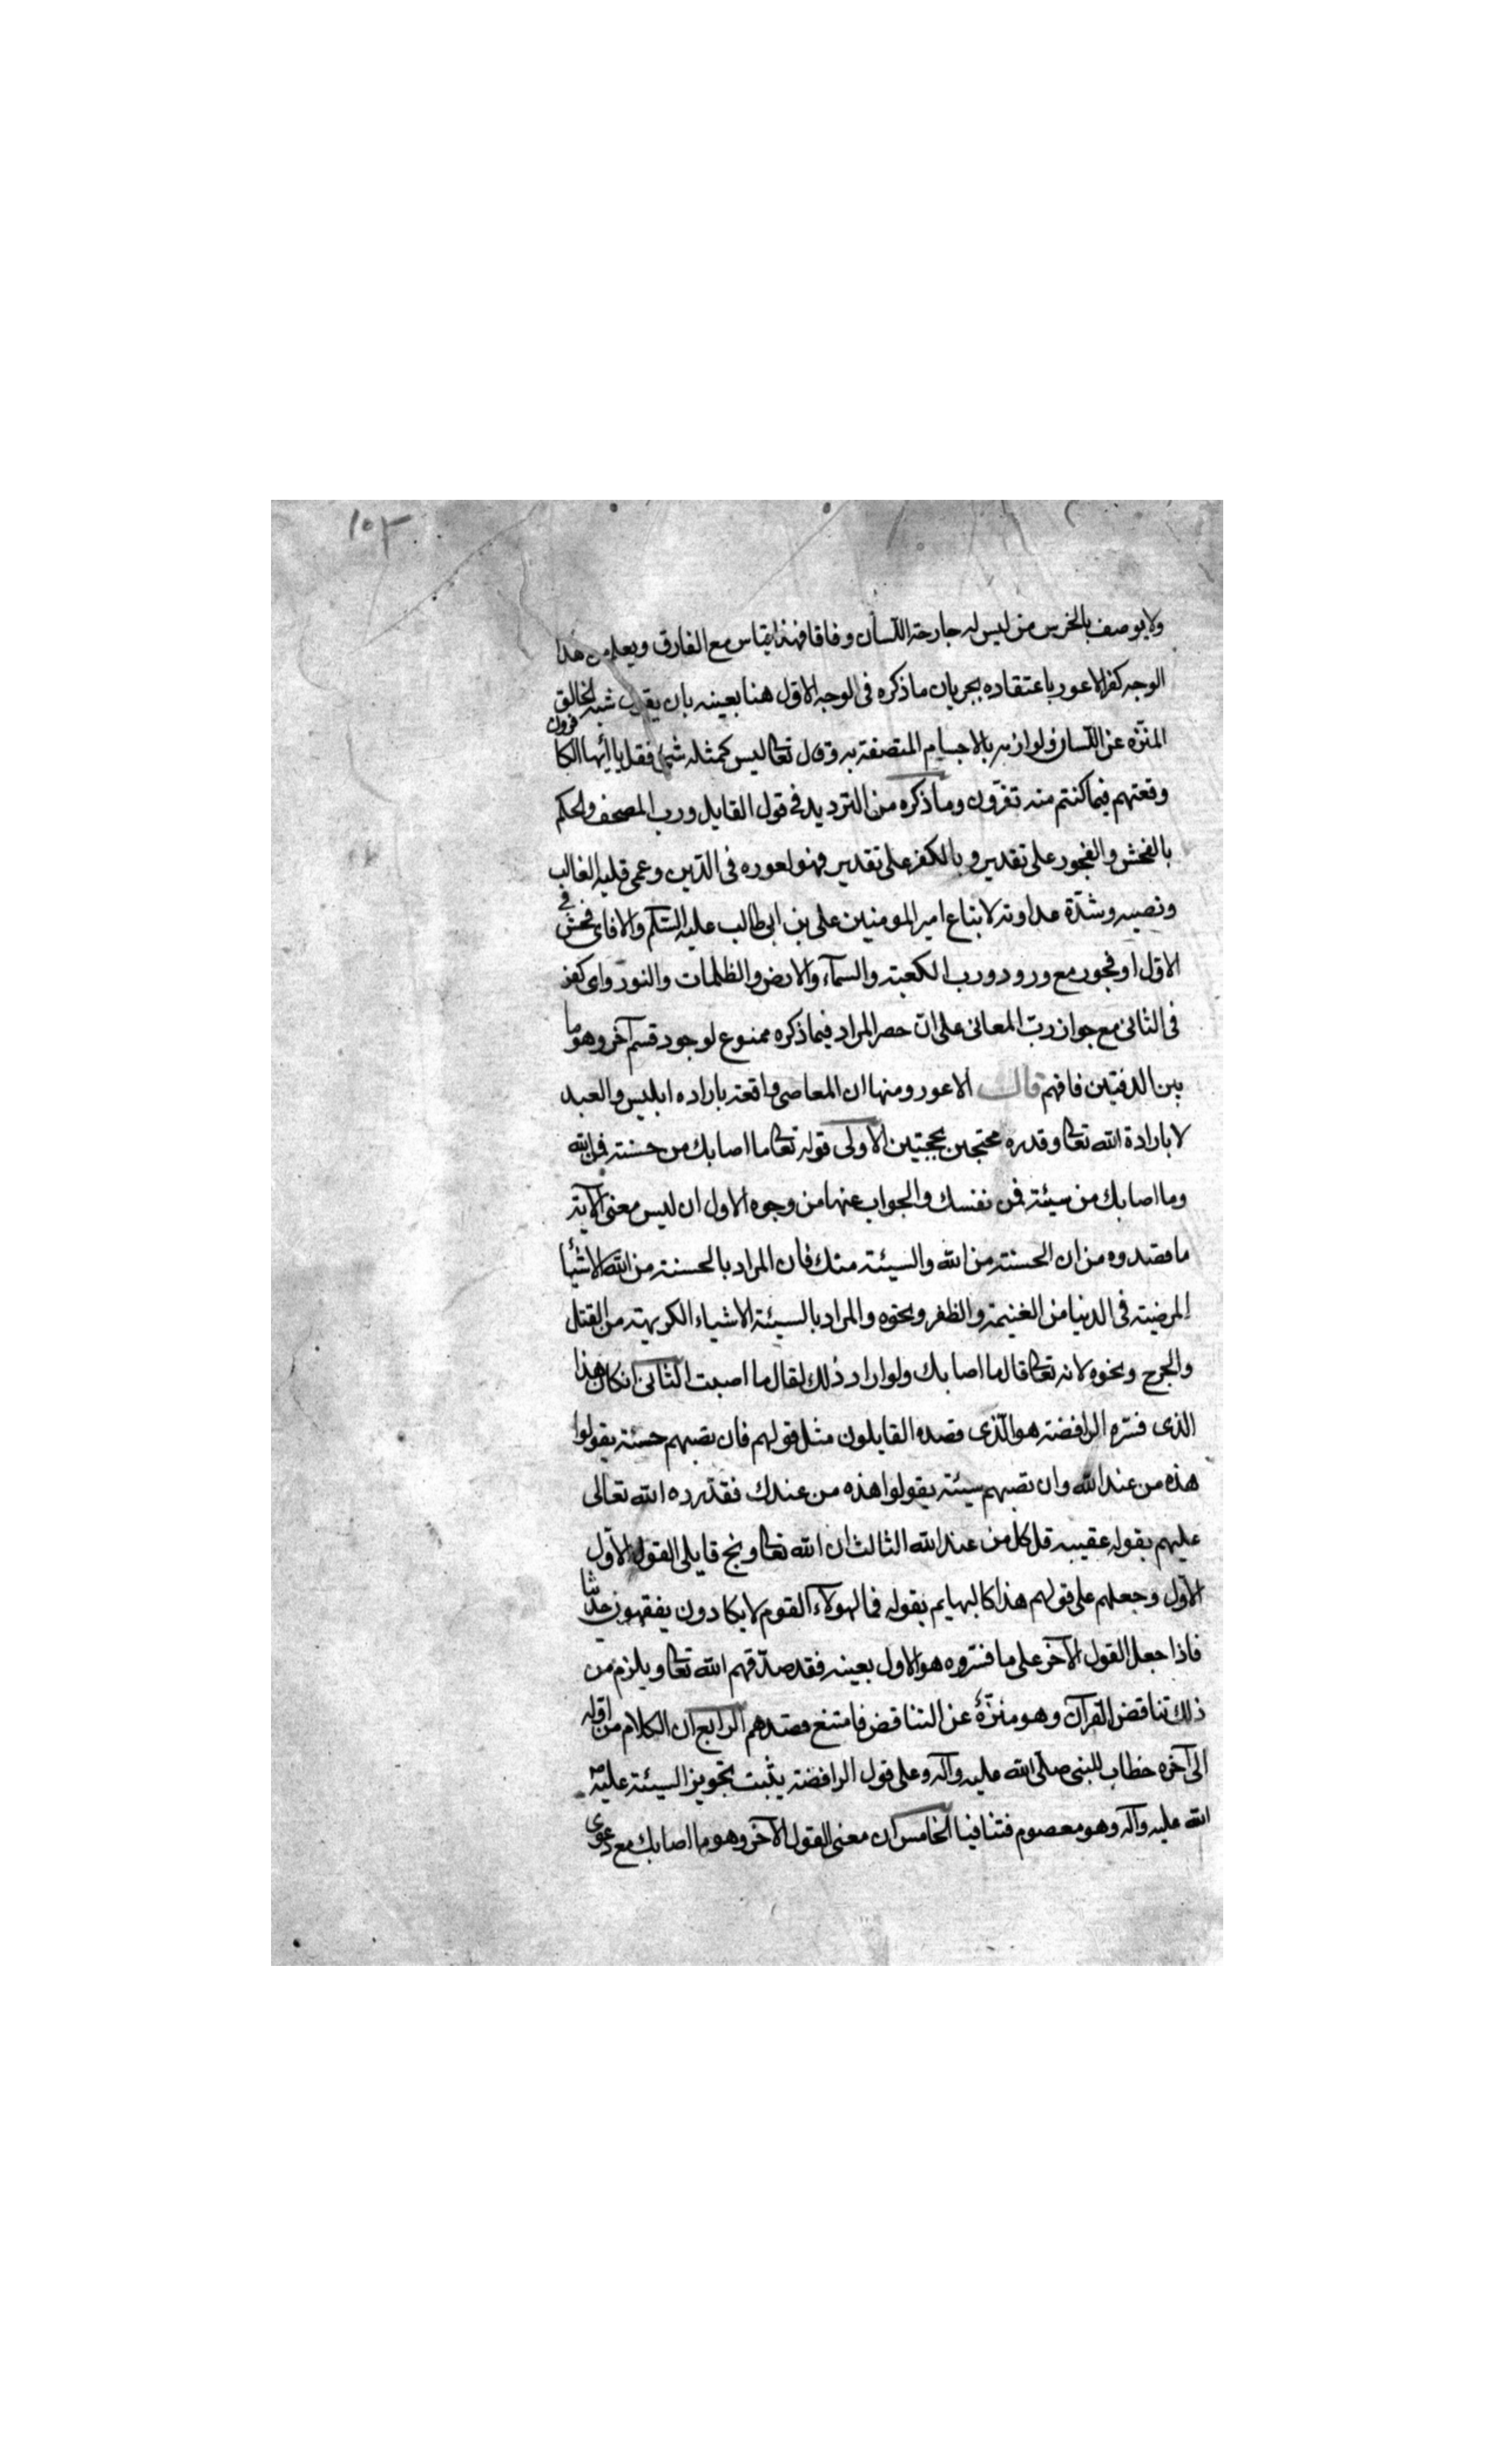 ١٥٣
ولا يوصف بالخرس من ليس له جارحة اللسان وفاقا فهذا قياس مع الفارق ويعلم من هذا
الوجه كفر الاعور باعتقاده بجريان ما ذكره فى الوجه الاول هنا بعينه بان يقول شبه الخالق
المنزه عن اللسان ولوازمه بالاجسام المتصفة به وقال تعالى ليس كمثله شئ فقل يا ايها الكافرون
وقعتهم فيما كنتم منه تفرّون وما ذكره من الترديد فى قول القايل ورب المصحف والحكم
بالفحش والفجور على تقدير وبالكفر على تقدير فهو لعوره فى الدّين وعمى قلبه الغالب
ونصبه وشدّة عداوته لاتباع امير المومنين على بن ابى طالب عليه السّلم والا فاى فحش فى
الاول او فجور مع ورود ورب الكعبة والسمآء والارض والظلمات والنور واى كفر
فى الثانى مع جواز ربّ المعانى على انّ حصر المراد فيما ذكره ممنوع لوجود قسم آخر وهو ما
بين الدفتين فافهم قال الاعور ومنها ان المعاصى واقعة باراده ابليس والعبد
لا بارادة الله تعالى وقدره محتجين بحجتين الاولى قوله تعالى ما اصابك من حسنة فمن الله
وما اصابك من سيئة فمن نفسك والجواب عنها من وجوه الاول ان ليس معنى الآية
ما قصدوه من ان الحسنة من الله والسيئة منك فان المراد بالحسنة من الله الاشيأ
المرضية فى الدنيا من الغنيمة والظفر ونحوه والمراد بالسيئة الاشياء الكريهة من القتل
والجرح ونحوه لانه تعالى قال ما اصابك ولو اراد ذلك لقال ما اصبت الثانى ان كان هذا
الذى فسّره الرافضة هو الّذى قصده القايلون مثل قولهم فان تصبهم حسنة يقولوا
هذه من عند الله وان تصبهم سيئة يقولوا هذه من عندك فقد رده الله تعالى
عليهم بقوله عقيبه قل كل من عند الله الثالث ان الله تعالى وبخ قايلى القول الاول
الاول وجعلهم على قولهم هذا كالبهايم بقوله فما لهولاء القوم لا يكادون يفقهون حديثا
فاذا جعل القول الآخر على ما فسّروه هو الاول بعينه فقد صدّقهم الله تعالى ويلزم من
ذلك تناقض القرآن وهو منزّه عن التناقض فامتنع قصدهم الرابع ان الكلام من اوله
الى آخره خطاب للنبى صلّى الله عليه وآله وعلى قول الرافضة يثبت تجويز السيئة عليه ص
الله عليه وآله وهو معصوم فتنافيا الخامس ان معنى القول الآخر وهو ما اصابك مع دعوى